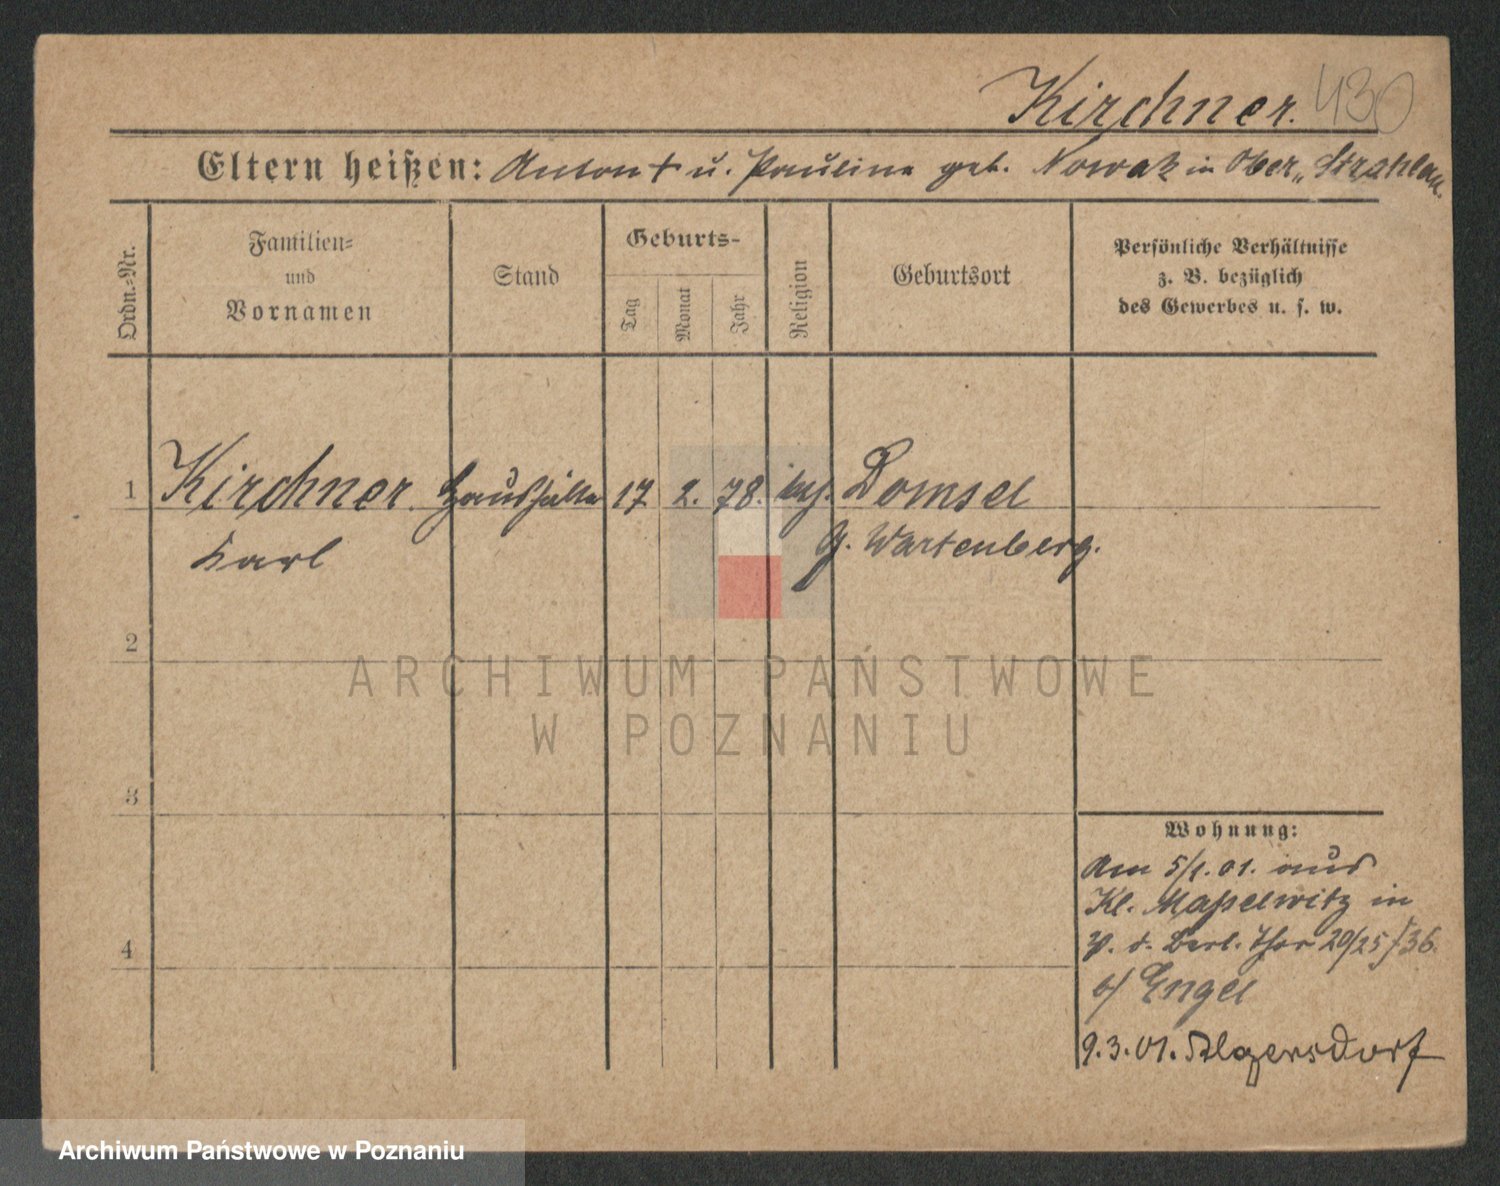 Kirchner. 430
Eltern heißen: Anton † u. Pauline geb. Nowak in Ober „Strahlau.
Ordn.-Nr.
Familien-
und
Vornamen
Stand
Geburts-
Tag
Monat
Jahr
Religion
Geburtsort
Persönliche Verhältnisse
z. B. bezüglich
des Gewerbes u. s. w.
1 Kirchner Haushälter 17 2. 78. Domsel
Karl G. Wartenberg.
2
ARCHIWUM PAŃSTWOWE
W POZNANIU
3
4
Wohnung:
Am 5/1.01. aus
Kl. Masselwitz in
P. v. Berl. Thor 20/25/36.
b/ Engel
9.3.01. Algersdorf
Archiwum Państwowe w Poznaniu